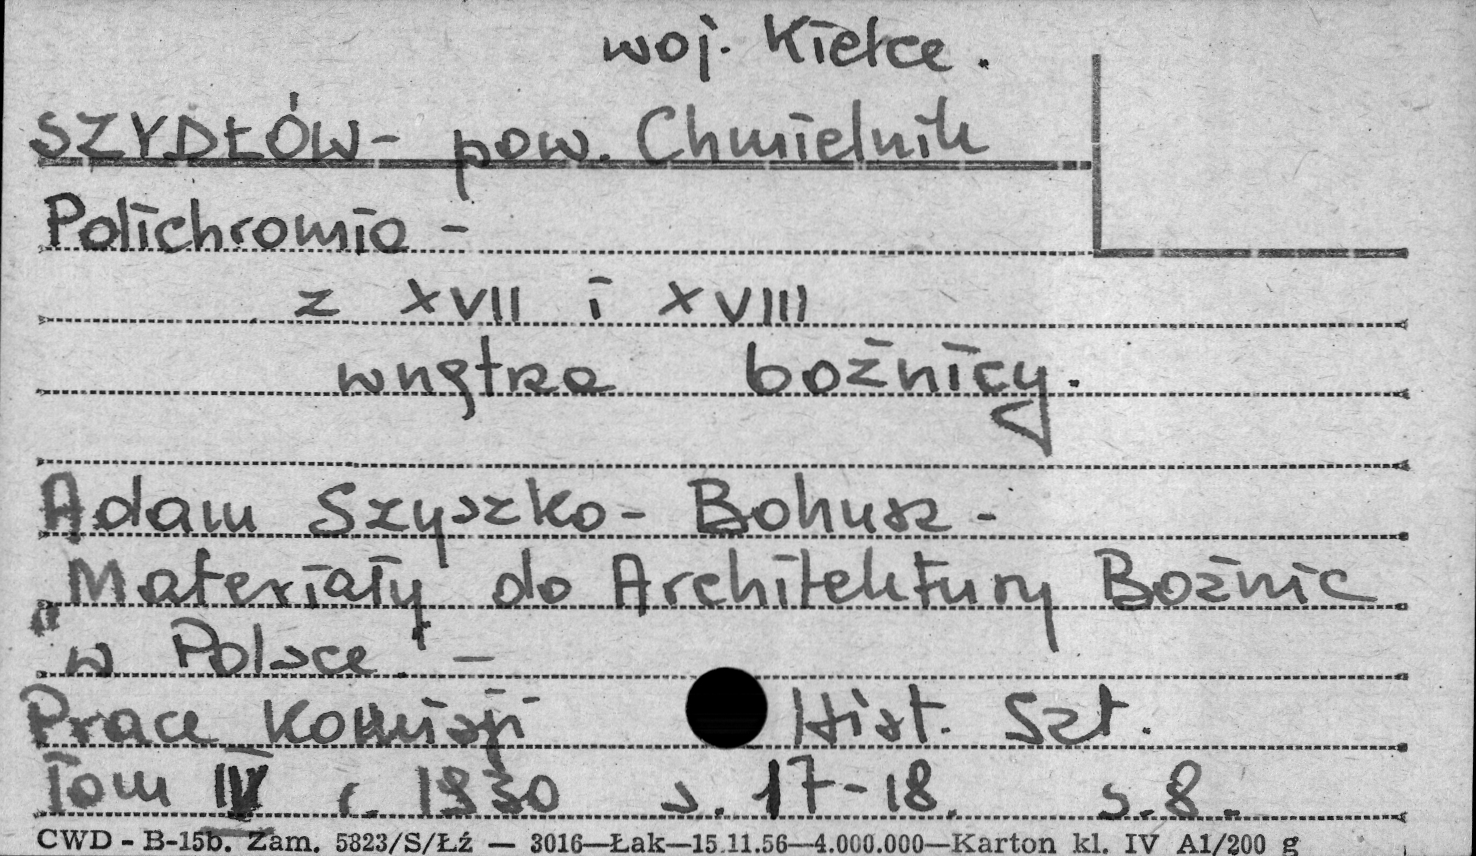 woj. Kielce.
SZYDŁÓW - pow. Chmielnik
Polichromia -
z XVII i XVIII
wnętrze bożnicy.
Adam Szyszko - Bohusz -
"Materiały do Architektury Bożnic
w Polsce" -
Prace Komisji Hist. Szt.
Tom IV r. 1930 s. 17-18. s. 8.
CWD - B-15b. Zam. 5823/S/Łź — 3016—Łak—15.11.56—4.000.000—Karton kl. IV A1/200 g